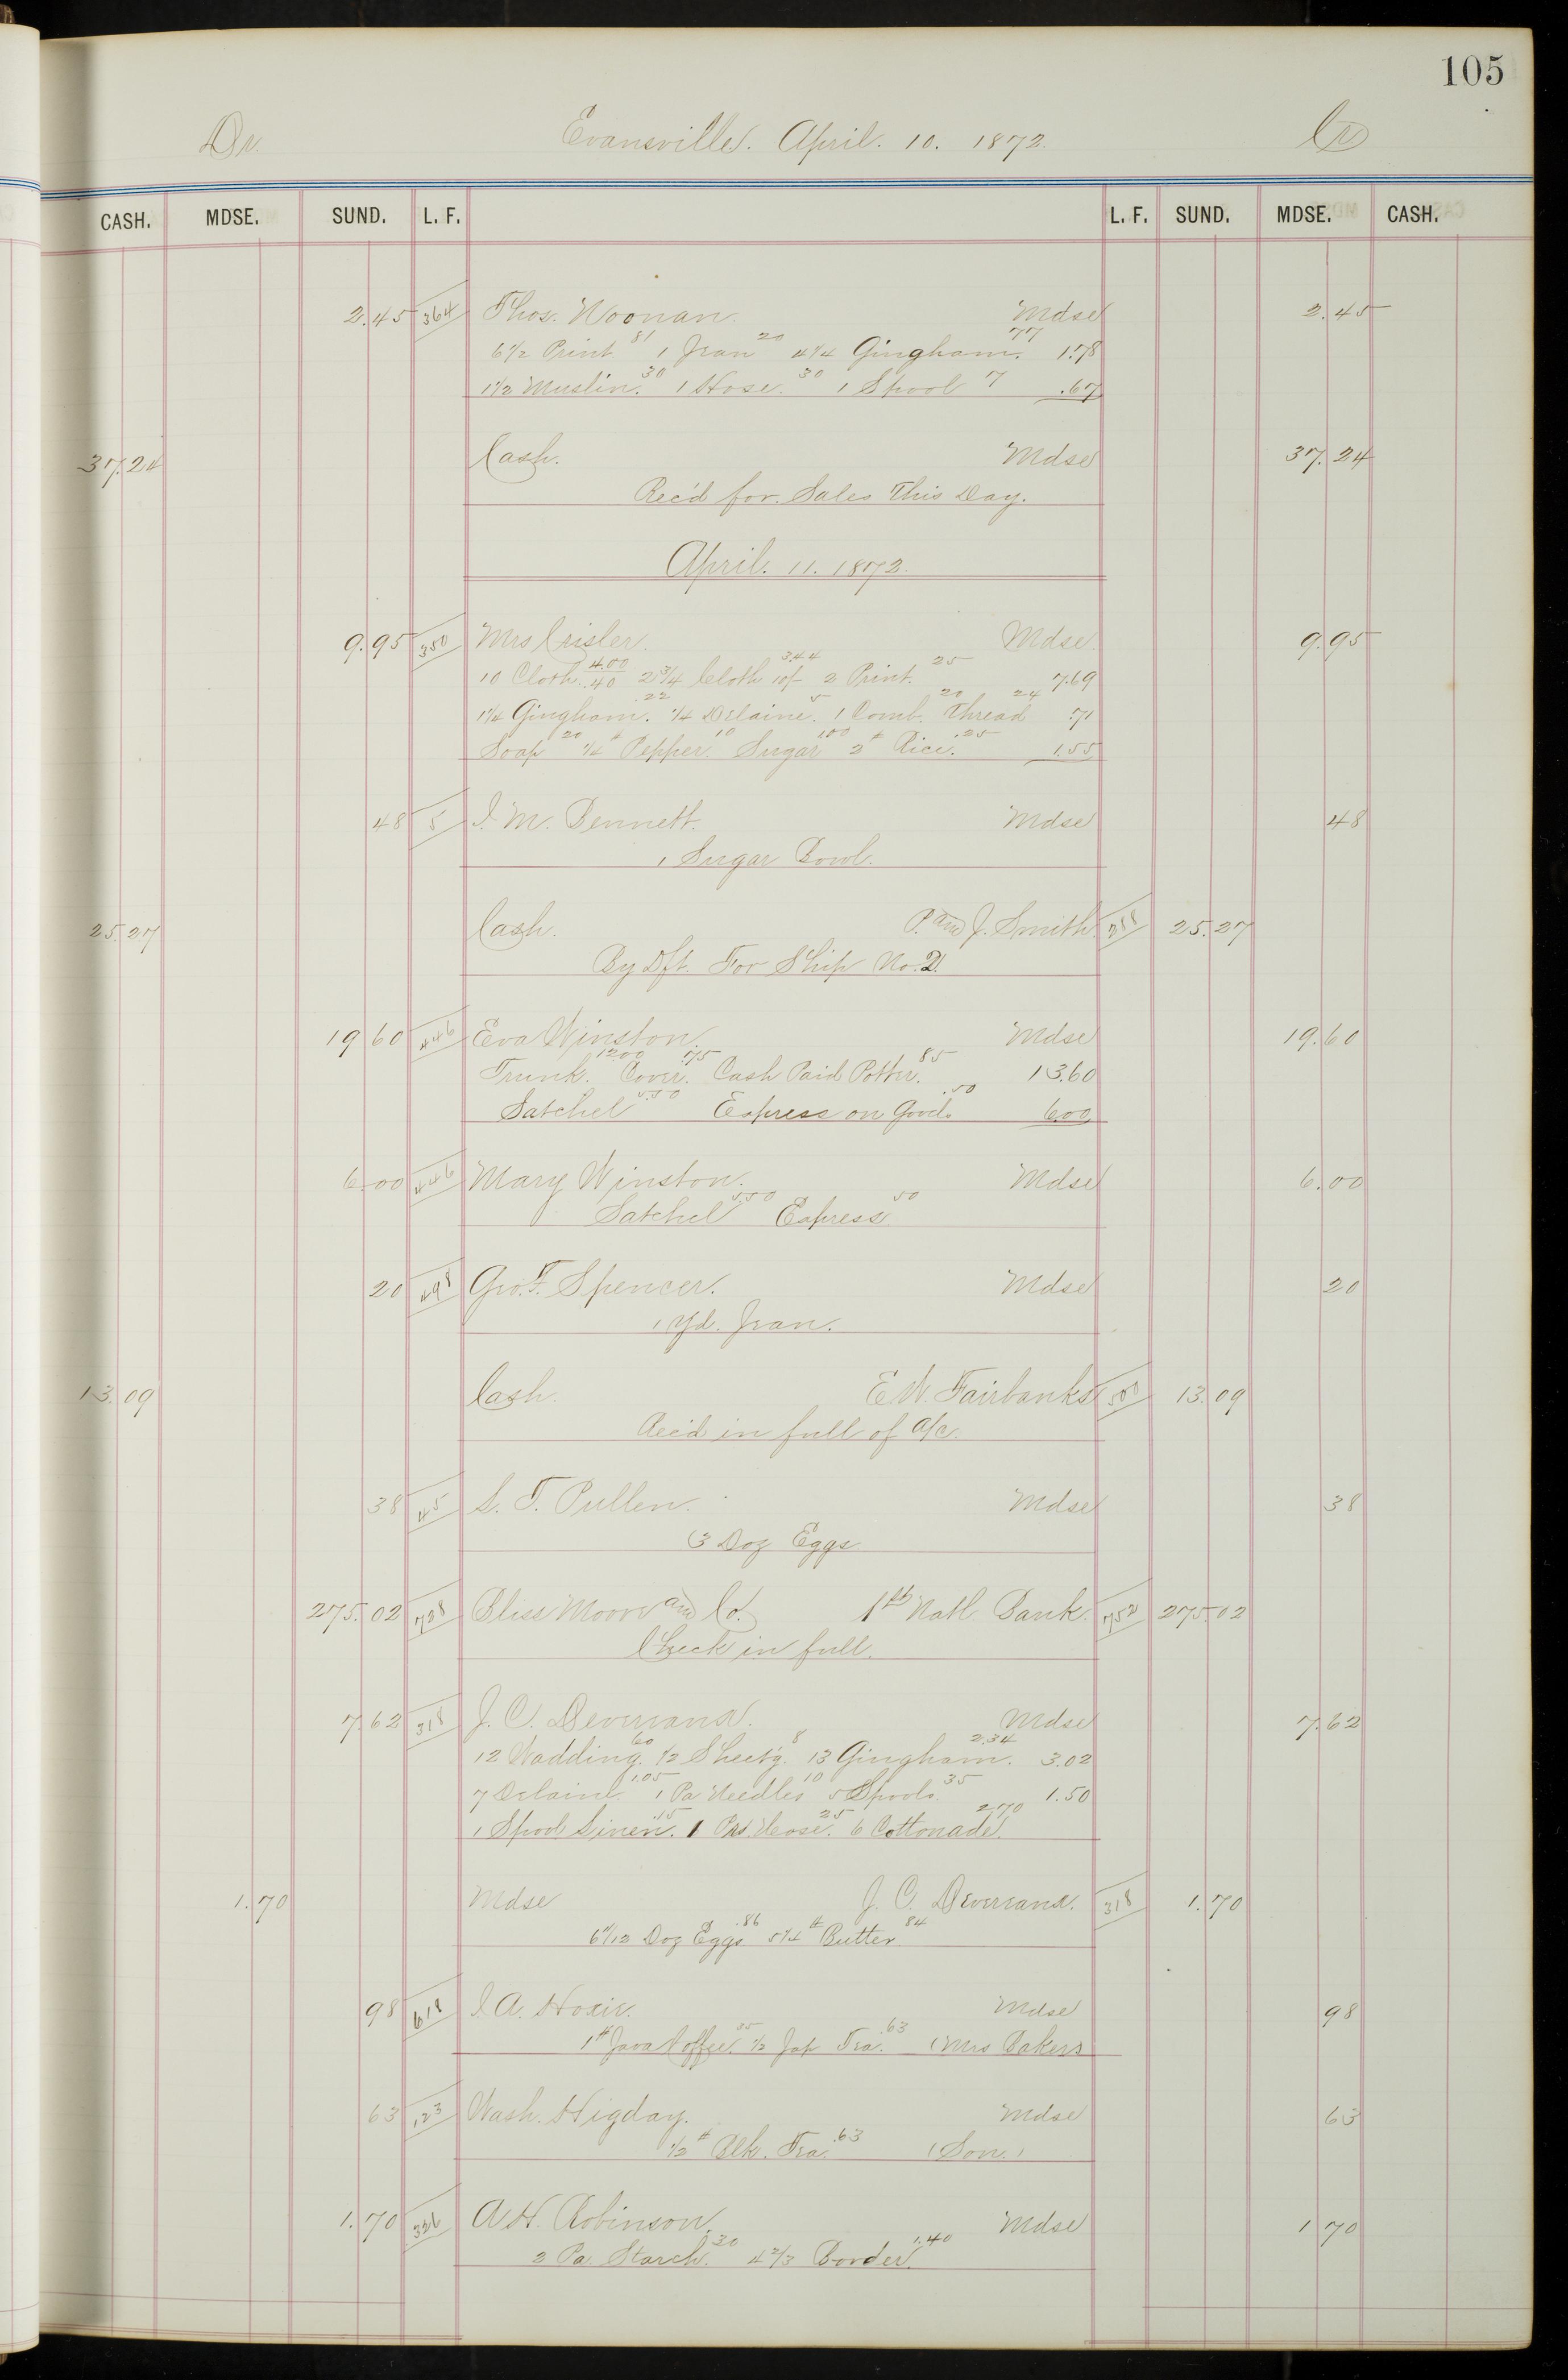 105
Dr. Evansville. April. 10. 1872. Cr
CASH. MDSE. SUND. L. F. L. F. SUND. MDSE. CASH.
2.45 364 Thos. Noonan. Mdse 2.45
6 1/2 Print. 81 1 Jean 20 4 1/4 Gingham. 77 1.78
1 1/2 Muslin. 30 1 Hose. 30 1 Spool 7 .67
37.24 Cash. Mdse 37.24
Rec'd for. Sales This Day.
April. 11. 1872.
9.95 350 Mrs Crisler. Mdse. 9.95
10 Cloth. 4.00 40 2 3/4 Cloth 10/- 3.44 2 Print. 25 7.69
1 1/4 Gingham. .22 1/4 Delaine. 5 1 Comb. 20 Thread 24 .71
Soap 20 1/4 # Pepper. 10 Sugar 1.00 2 # Rice. .25 1.55
48 5 I. M. Bennett. Mdse 48
1 Sugar Bowl.
25.27 Cash. P. and J. Smith. 288 25.27
By Dft. For Ship No. 2.
19 60 446 Eva Winston. Mdse 19.60
Trunk. 1200 Cover. .75 Cash Paid Potter. 85 13.60
Satchel 5.50 Express on Goods .50 6.00
6.00 446 Mary Winston. Mdse 6.00
Satchel 5.50 Express 50
20 498 Geo. F. Spencer. Mdse 20
1 Yd. Jean.
13.09 Cash. E. W. Fairbanks 500 13.09
Rec'd in full of a/c.
38 45 L. T. Pullen. Mdse 38
3 Doz Eggs
275.02 728 Bliss Moore and Co. 1st Natl Bank. 752 275.02
Check in full.
7.62 318 J. C. Devereaux. Mdse 7.62
12 Wadding. 60 1/2 Sheet'g. 8 13 Gingham. 2.34 3.02
7 Delaine. 1.05 1 Pa Needles 10 5 Spools. 35 1.50
1 Spool Linen. .15 1 Prs. Hose. 25 6 Cottonade. 2.70
1.70 Mdse J. C. Devereaux. 318 1.70
6 7/12 Doz Eggs .86 5 1/4 # Butter 84
98 618 I. A. Hoxie. Mdse 98
1 # Java Coffee. 35 1/2 Jap Tea. .63 (Mrs Bakers
63 123 Wash. Higday. Mdse 63
1/2 # Blk. Tea. .63 (Son.)
1.70 336 A. H. Robinson. Mdse 1 70
3 Pa. Starch. .30 4 2/3 Border. 1.40